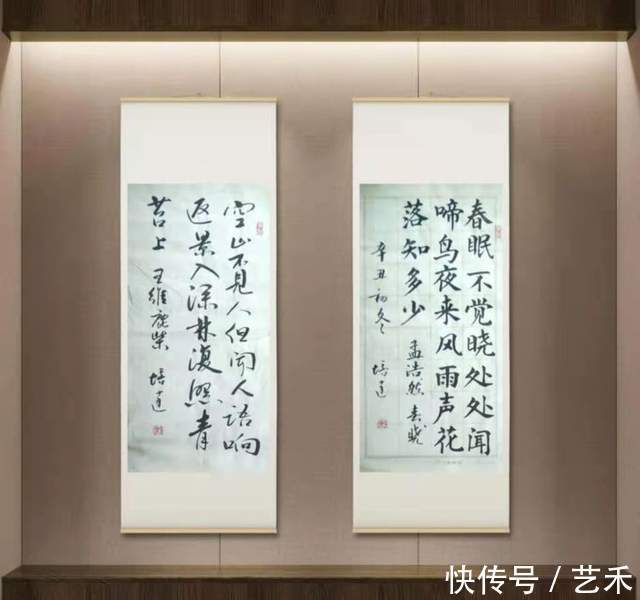 春眠不觉晓处处闻
啼鸟夜来风雨声花
落知多少 孟浩然 春晓
辛丑初冬 培达
空山不见人但闻人语响
返景入深林复照青
苔上 王维鹿柴 培达
快传号 / 艺禾